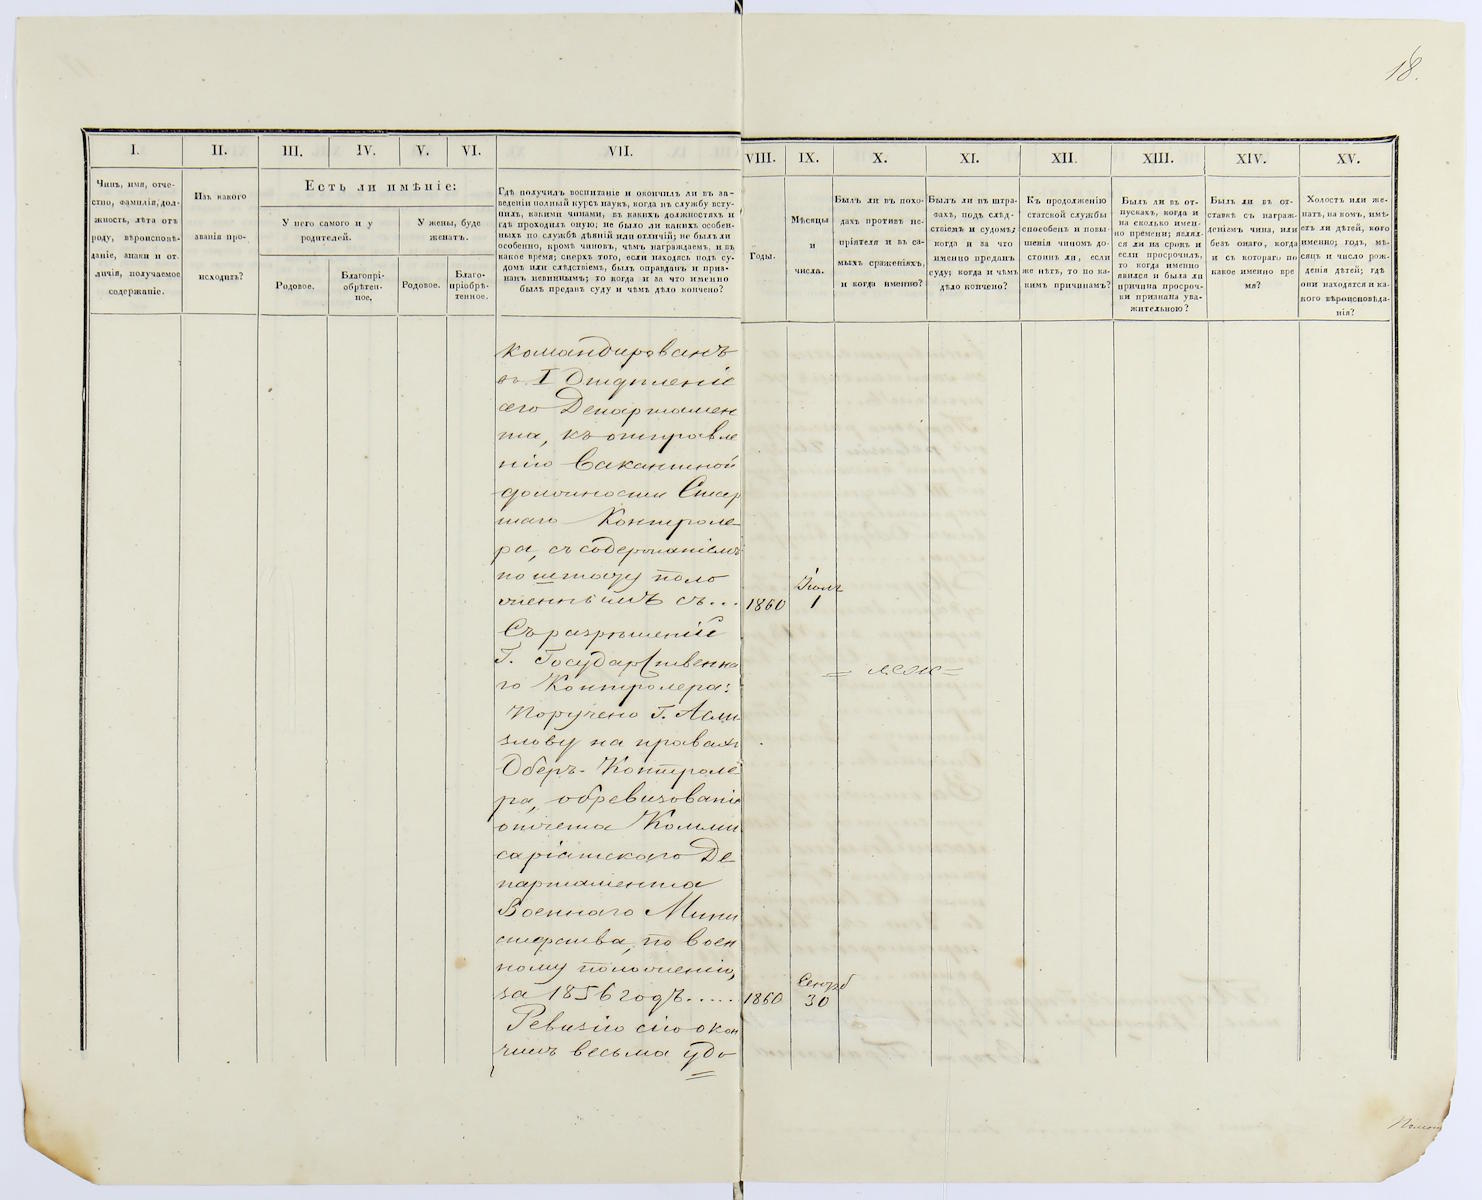 18.
I.
II.
III.
IV.
V.
VI.
VII.
VIII.
IX.
X.
XI.
XII.
XIII.
XIV.
XV.
Чинъ, имя, отче-
ство, фамилія, дол-
жность, лѣта отъ
роду, вѣроисповѣ-
даніе, знаки и от-
личія, получаемое
содержаніе.
Изъ какого
званія про-
исходитъ?
Есть ли имѣніе:
У него самого и у
родителей.
У жены, буде
женатъ.
Родовое.
Благопрі-
обрѣтен-
ное.
Родовое.
Благо-
пріобрѣ-
тенное.
Гдѣ получилъ воспитаніе и окончилъ ли въ за-
веденіи полный курсъ наукъ, когда въ службу всту-
пилъ, какими чинами, въ какихъ должностяхъ и
гдѣ проходилъ оную; не было ли какихъ особен-
ныхъ по службѣ дѣяній или отличій; не былъ ли
особенно, кромѣ чиновъ, чѣмъ награждаемъ, и въ
какое время; сверхъ того, если находясь подъ су-
домъ или слѣдствіемъ, былъ оправданъ и приз-
нанъ невиннымъ; то когда и за что именно
былъ преданъ суду и чѣмъ дѣло кончено?
Годы.
Мѣсяцы
и
числа.
Былъ ли въ похо-
дахъ противъ не-
пріятеля и въ са-
мыхъ сраженіяхъ,
и когда именно?
Былъ ли въ штра-
фахъ, подъ слѣд-
ствіемъ и судомъ;
когда и за что
именно преданъ
суду; когда и чѣмъ
дѣло кончено?
Къ продолженію
статской службы
способенъ и повы-
шенія чиномъ до-
стоинъ ли, если
же нѣтъ, то по ка-
кимъ причинамъ?
Былъ ли въ от-
пускахъ, когда и
на сколько имен-
но времени; являл-
ся ли на срокъ и
если просрочилъ,
то когда именно
явился и была ли
причина просроч-
ки признана ува-
жительною?
Былъ ли въ от-
ставкѣ съ награж-
деніемъ чина, или
безъ онаго, когда
и съ котораго по
какое именно вре
мя?
Холостъ или же-
натъ, на комъ, имѣ-
етъ ли дѣтей, кого
именно; годъ, мѣ-
сяцъ и число рож-
денія дѣтей; гдѣ
они находятся и ка-
кого вѣроисповѣда-
нія?
командированъ
въ I Отдѣленіе
сего Департамен
та, къ отправле
нію вакантной
должности Стар
шаго Контроле-
ра, съ содержаніемъ
по штату поло
женнымъ съ...
1860
Іюля
1
Съ разрѣшенія
Г. Государственна
го Контролера:
поручено Г.
злову на правахъ
Оберъ-Контроле
ра, обревизованіе
отчета Комми
саріатскаго Де
партамента
Военнаго Мини
стерства, по воен
ному положенію,
за 1856 годъ.....
1860
Сентрб
30
Ревизію сію окон
чилъ весьма удо